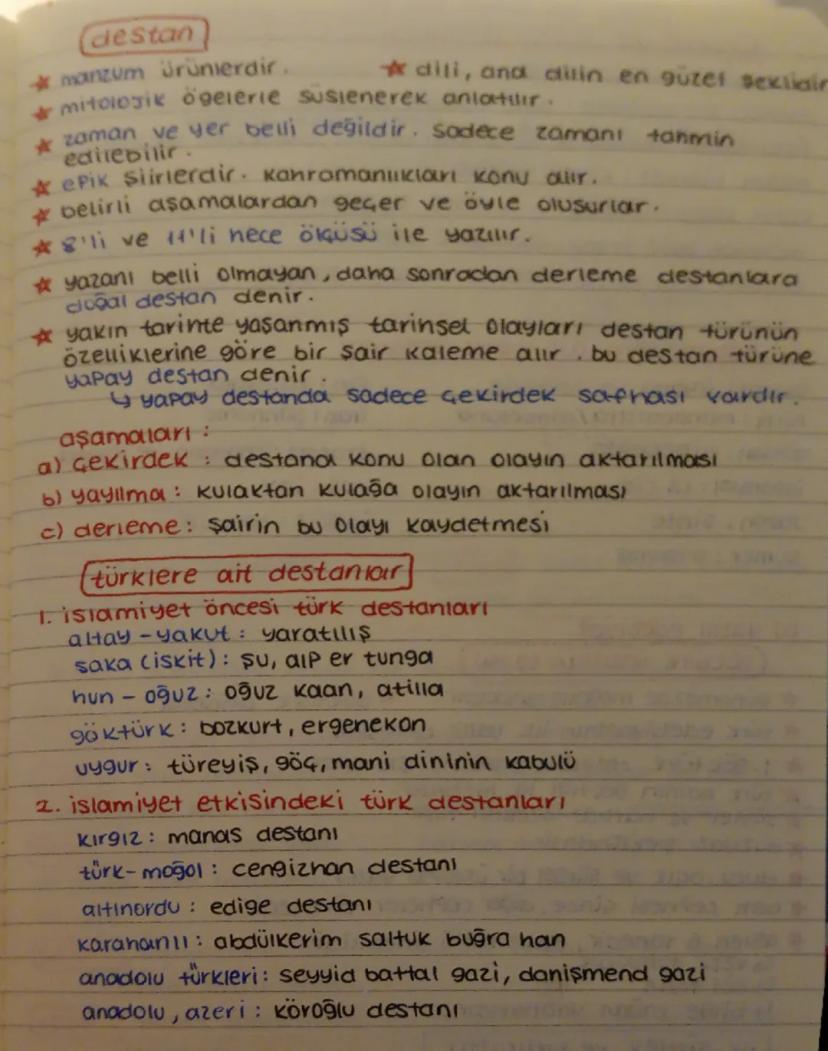 destan
★ manzum ürünlerdir. ★ dili, ana dilin en güzel şeklidir
★ mitolojik ögelerle süslenerek anlatılır.
★ zaman ve yer belli değildir. sadece zamanı tahmin
edilebilir.
★ epik şiirlerdir. kahramanlıkları konu alır.
★ belirli aşamalardan geçer ve öyle oluşurlar.
★ 8'li ve 11'li hece ölçüsü ile yazılır.
★ yazanı belli olmayan, daha sonradan derleme destanlara
doğal destan denir.
★ yakın tarihte yaşanmış tarihsel olayları destan türünün
özelliklerine göre bir şair kaleme alır. bu destan türüne
yapay destan denir.
↳ yapay destanda sadece çekirdek safhası vardır.
aşamaları:
a) çekirdek: destana konu olan olayın aktarılması
b) yayılma: kulaktan kulağa olayın aktarılması
c) derleme: şairin bu olayı kaydetmesi
türklere ait destanlar
1. islamiyet öncesi türk destanları
altay-yakut: yaratılış
saka (iskit): şu, alp er tunga
hun - oğuz: oğuz kaan, atilla
göktürk: bozkurt, ergenekon
uygur: türeyiş, göç, mani dininin kabulü
2. islamiyet etkisindeki türk destanları
kırgız: manas destanı
türk-moğol: cengizhan destanı
altınordu: edige destanı
karahanlı: abdülkerim saltuk buğra han
anadolu türkleri: seyyid battal gazi, danişmend gazi
anadolu, azeri: köroğlu destanı